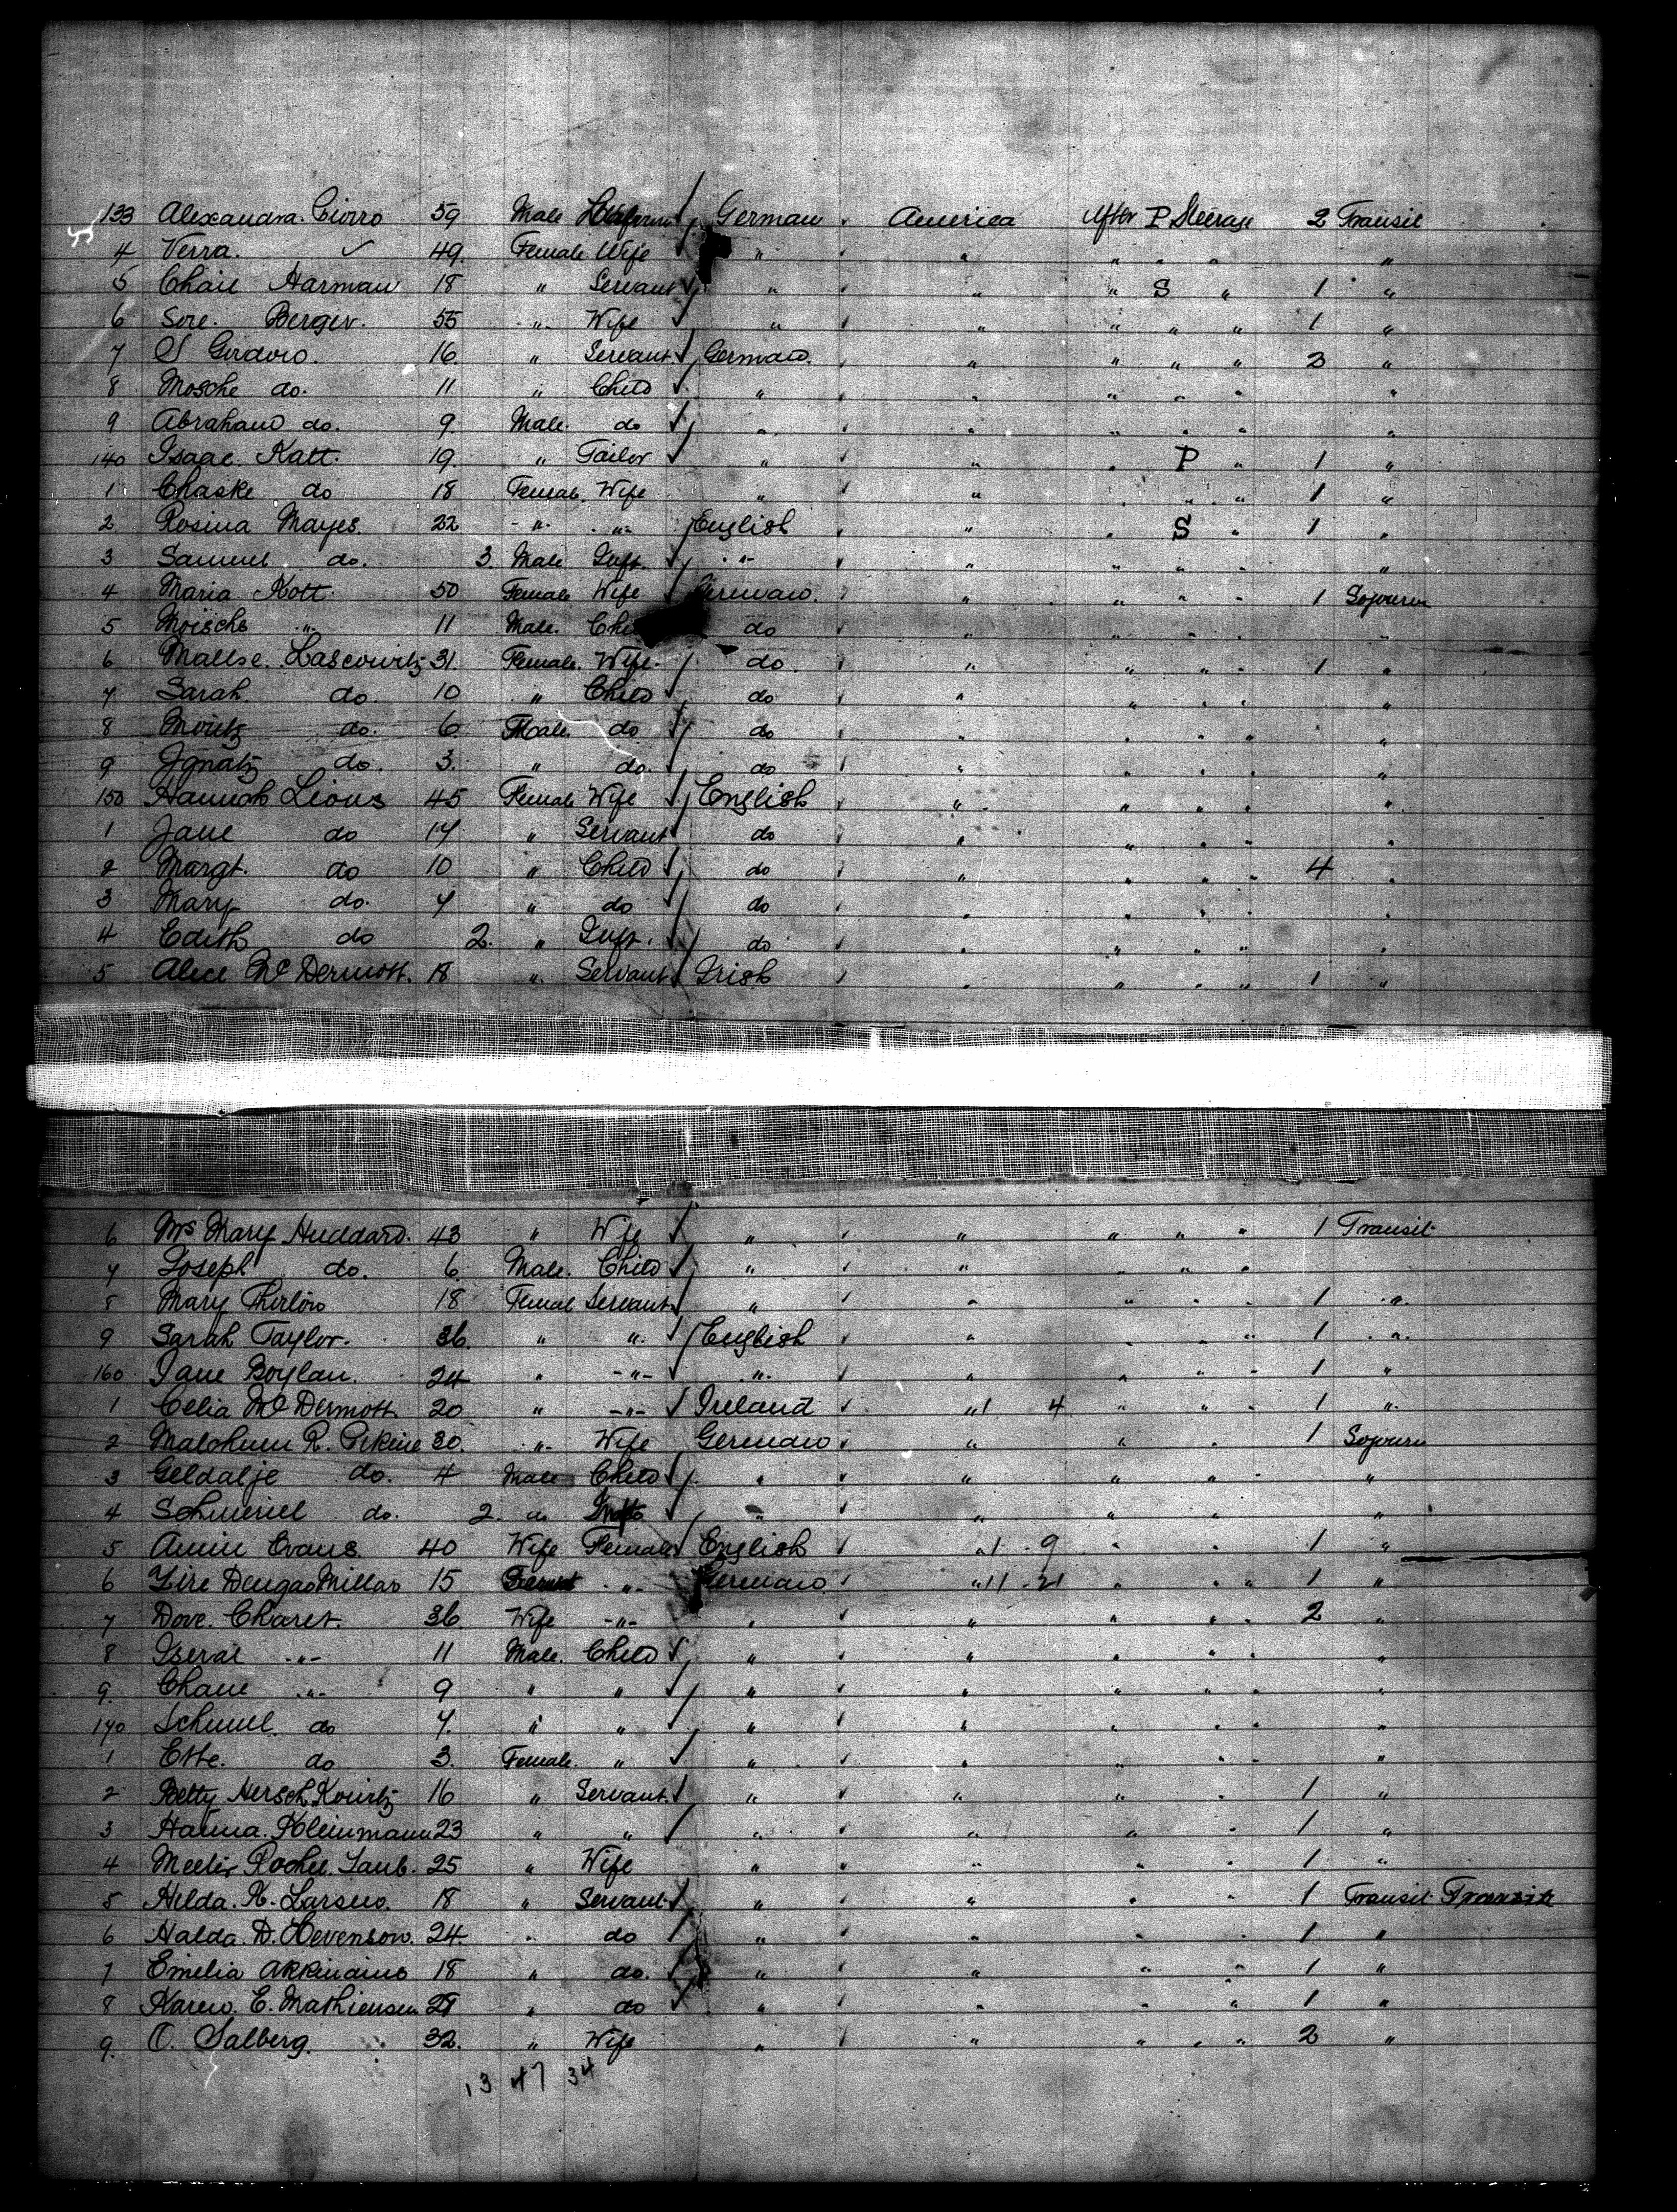 133 Alexandra Ciorro 59 Male German America After P Steerage 2 Transit
4 Verra. 49 Female Wife " " " " " "
5 Chaie Harman 18 " Servant " " " S " 1 "
6 Sore. Berger. 55 " Wife " " " " " 1 "
7 S Gordoro. 16 " Servant German. " " " " 3 "
8 Mosche do. 11 " Child " " " " " "
9 Abraham do. 9 Male. do " " " " " "
140 Isaac. Katt. 19. " Tailor " " " P " 1 "
1 Chaske do 18 Female. Wife " " " " " 1 "
2 Rosina Mayes. 22 " " English " " S " 1 "
3 Samuel do. 3 Male Inft. " " " " " "
4 Maria Kott. 50 Female Wife German. " " " " 1 Sojourn
5 Moische " 11 Male. do " " " " "
6 Mallse. Lascowitz 31. Female. Wife. do " " " " 1 "
7 Sarah do. 10 " Child do " " " " "
8 Moritz do. 6 Male. do do " " " " "
9 Ignatz do. 3. " do. do " " " " "
150 Hannah Lions 45 Female Wife English " " " " "
1 Jane do 17 " Servant do " " " " "
2 Margt. do 10 " Child do " " " " 4 "
3 Mary do. 7 " do do " " " " "
4 Edith do 2. " Inft. do " " " " "
5 Alice McDermott. 18 " Servant Irish " " " " 1 "
6 Mrs Mary Huddard. 43 " Wife " " " " " 1 Transit
7 Joseph do. 6 Male. Child " " " " "
8 Mary Thirlow 18 Femal Servant " " " " " 1 "
9 Sarah Taylor. 36. " " English " " " " 1 "
160 Jane Boylan. 24 " " " " " " " 1 "
1 Celia McDermott 20 " " Ireland "1 4 " " " 1 "
2 R. Pekeire 30. " Wife German " " " 1 Sojourn
3 Geldalje do. 4 Male Child " " " " " "
4 Schmeriel do. 2. do " " " " "
5 Annie Evans. 40 Wife Female English "1 9 " " 1 "
6 15 " German. "11 21 " " " 1 "
7 Dove. Charet. 36 Wife " " " " " " 2 "
8 Iseral " 11 Male. Child " " " " " "
9. Chane " 9 " " " " " " " "
170 Schmul do 7. " " " " " " " "
1 Ette. do 3. Female. " " " " " " "
2 Betty Hersch Kowitz 16 " Servant. " " " " 1 "
3 Hanna. Kleinmann 23 " " " " " " 1 "
4 Rochel. Taub. 25 " Wife " " " " 1 "
5 Hilda. K. Larsen. 18 " Servant " " " " 1 Transit Transit
6 Halda. D. 24 " do " " " " 1 "
7 Emelia 18 " do. " " " " 1 "
8 Karen. E. Mathiensen 29 " do " " " " 1 "
9. O. Salberg. 32. " Wife " " " " " 2 "
13 47 34